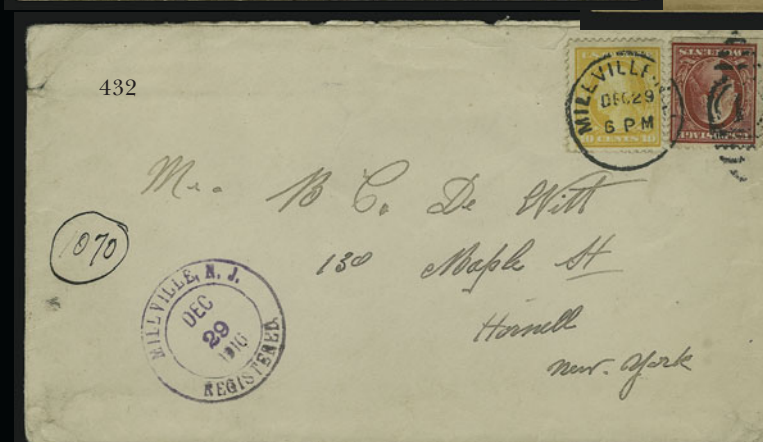 432
MILLVILLE, N.J.
DEC 29
6 P M
10 CENTS 10
TWO CENTS
POSTAGE
Mr. B C. De Witt
130 Maple St
Hornell
New. York
1070
MILLVILLE, N. J.
DEC
29
1916
REGISTERED